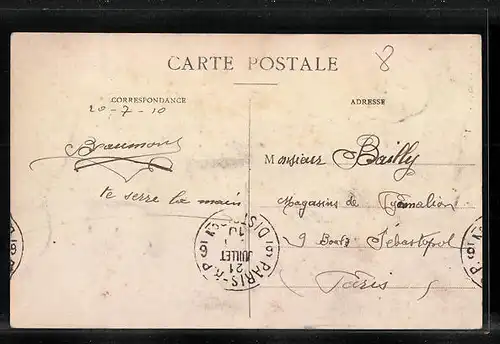 CARTE POSTALE
8
CORRESPONDANCE
20-7-10
Beaumont
te serre la main
ADRESSE
Monsieur Bailly
Magasins de Pygmalion
9 Boul Sébastopol
Paris
PARIS
DISTON
21
JUILLET
10